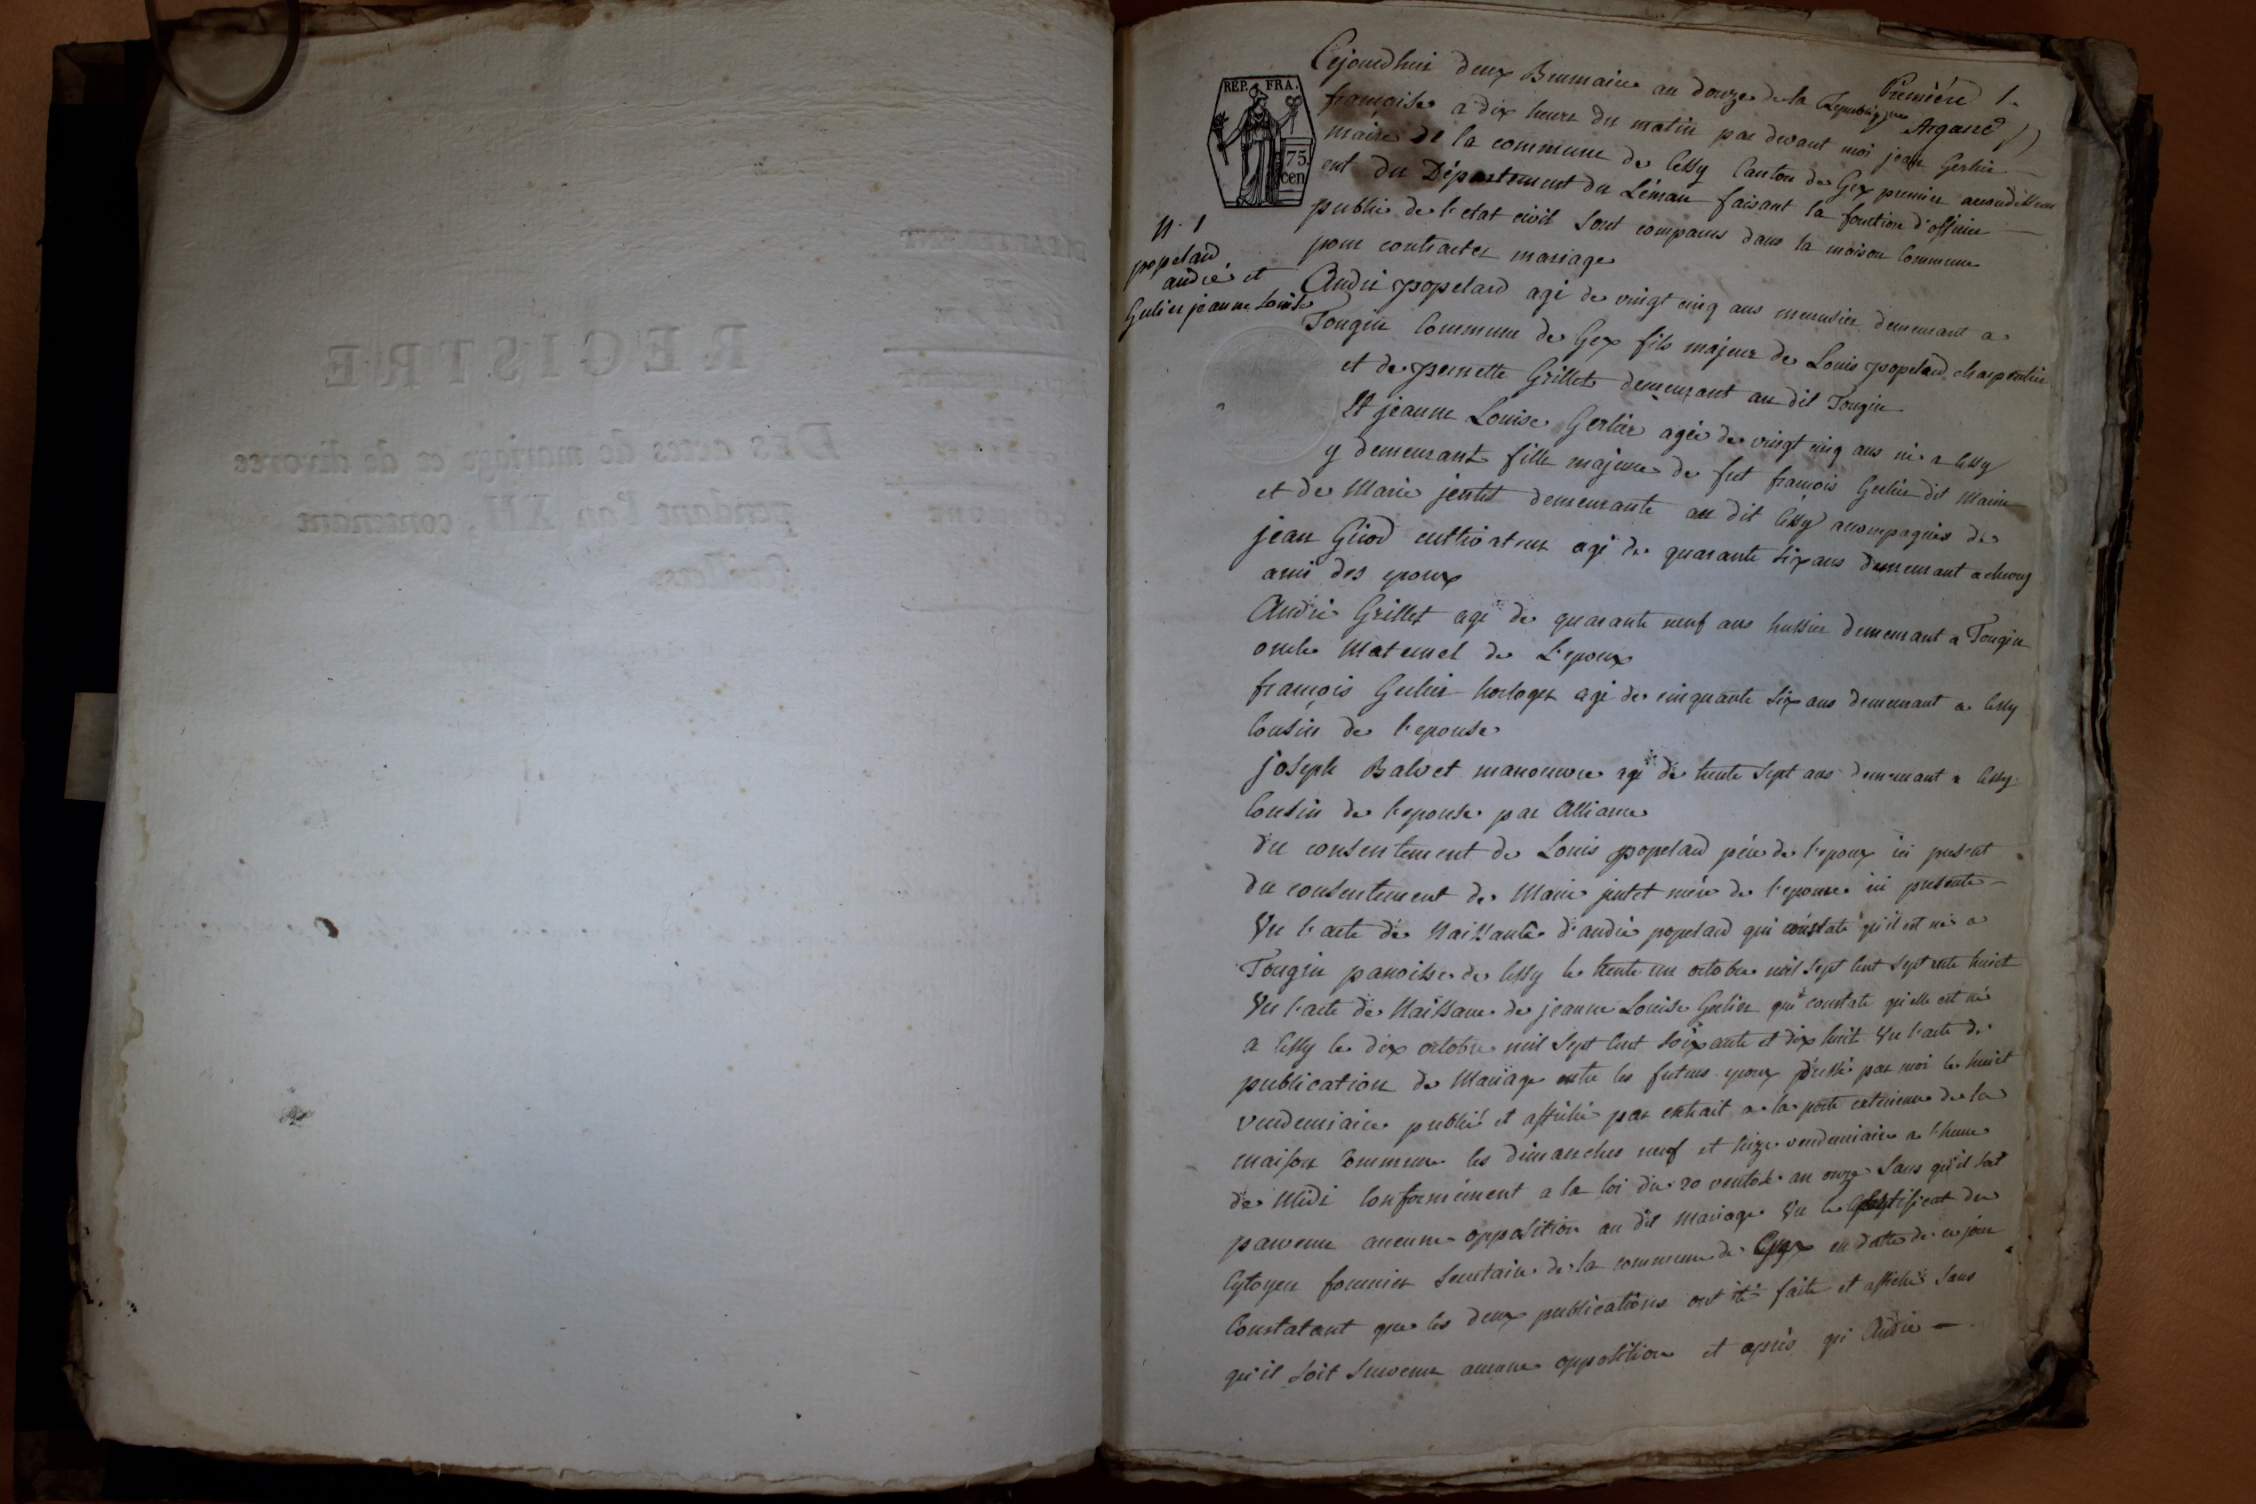 REGISTRE
DES actes de mariage et de divorce
pendant l'an XII, contenant
feuillets
Première 1.
REP. FRA.
75.
cen
N. 1
popelard
andré et
Gerlier jeanne Louise
Cejourdhui deux Brumaire an douze de la Republique
françoise a dix heure du matin par devant moi jean Gerlier
maire de la commune de Cessy Canton de Gex premier arondissem
ent du Département du Léman faisant la fonction d'officier
public de l'etat civil sont comparus dans la maison Commune
pour contracter mariage
André popelard agé de vingt cinq ans menusier demeurant a
Tougin Commune de Gex fils majeur de Louis popelard charpentier
et de pernette Grillet demeurant au dit Tougin
Et jeanne Louise Gerlier agée de vingt cinq ans née a Cessy
y demeurant fille majeure de fut françois Gerlier dit
et de Marie jentet demeurante au dit Cessy acompagnés de
jean Girod cultivateur agé de quarante six ans demeurant a
ami des epoux
André Grillet agé de quarante neuf ans hussier demeurant a Tougin
oncle maternel de L'epoux
françois Gerlier horloger agé de cinquante six ans demeurant a Cessy
Cousin de l'epouse
joseph Balvet manoeuvre agé de trente sept ans demeurant a Cessy
Cousin de l'epouse par Alliance
du consentement de Louis popelard père de l'epoux ici present
du consentement de Marie jentet mère de l'epouse ici presente
Vu l'acte de Naissance d'andré popelard qui constate qu'il est né a
Tougin paroisse de Cessy le trente un octobre mil sept cent septante huict
Vu l'acte de Naissance de jeanne Louise Gerlier qui constate qu'elle est né
a Cessy le dix octobre mil sept cent soixante et dix huit Vu l'acte de
publication de Mariage entre les futurs epoux dressé par moi le huict
vendemiaire publié et affiché par extrait a la porte exterieure de la
maison Commune les dimanches neuf et seize vendemiaire a l'heure
de Midi Conformément a la loi du 20 ventose an onze sans qu'il soit
parvenu aucune opposition au dit mariage Vu le Certificat du
Cytoyen fournier Secretaire de la commune de Gex en datte de ce jour
Constatant que les deux publications ont été faite et affiché sans
qu'il soit survenu aucune opposition et après qu'André